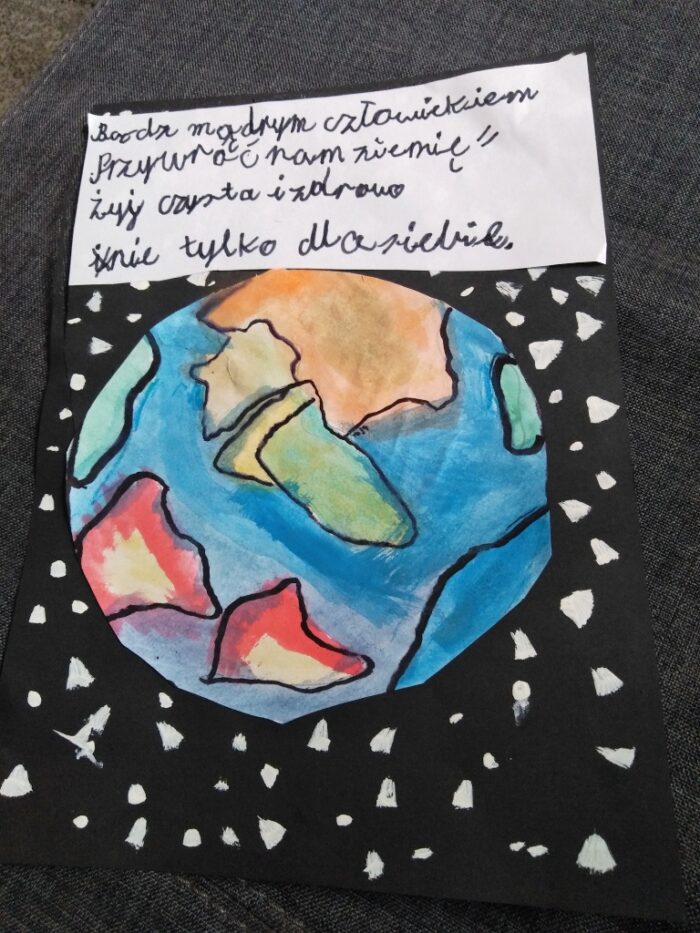 Bądz mądrym człowiekiem
Przywróć nam ziemię"
żyj czysta i zdrowo
i nie tylko dla siebie.